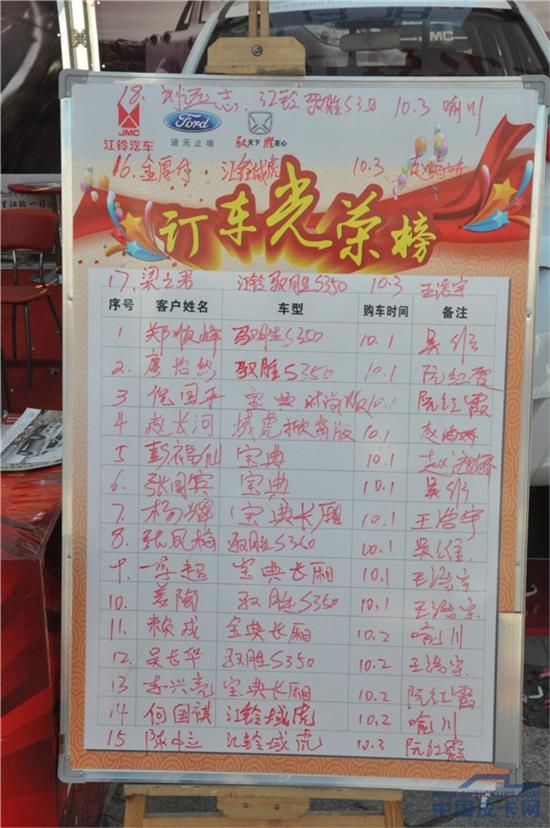 JMC
18. 刘 志 江铃 驭胜S350 10.3 喻川
JMC
江铃汽车
Ford
进无止境
驭天下 胜在心
16. 江铃域虎 10.3
订车光荣榜
17. 梁 江铃驭胜S350 10.3 王浩宇
序号 客户姓名 车型 购车时间 备注
1 郑顺峰 驭胜S350 10.1 吴
2. 驭胜S350 10.1 阮红霞
3 国平 宝典时尚版 10.1 阮红霞
4 赵长河 域虎 版 10.1 赵海娇
5 彭福仙 宝典 10.1 赵海娇
6. 张国宾 宝典 10.1 吴
7. 杨辉 宝典长厢 10.1 王浩宇
8. 张凤梅 驭胜S350 10.1 吴
李超 宝典长厢 10.1 王浩宇
10. 姜陶 驭胜S350 10.1 王浩宇
11. 赖成 宝典长厢 10.2 喻川
12. 吴长华 驭胜S350 10.2 王浩宇
13 李兴亮 宝典长厢 10.2 阮红霞
14 何国祺 江铃域虎 10.2 喻川
15 陈中立 江铃域虎 10.3 阮红霞
中国皮卡网